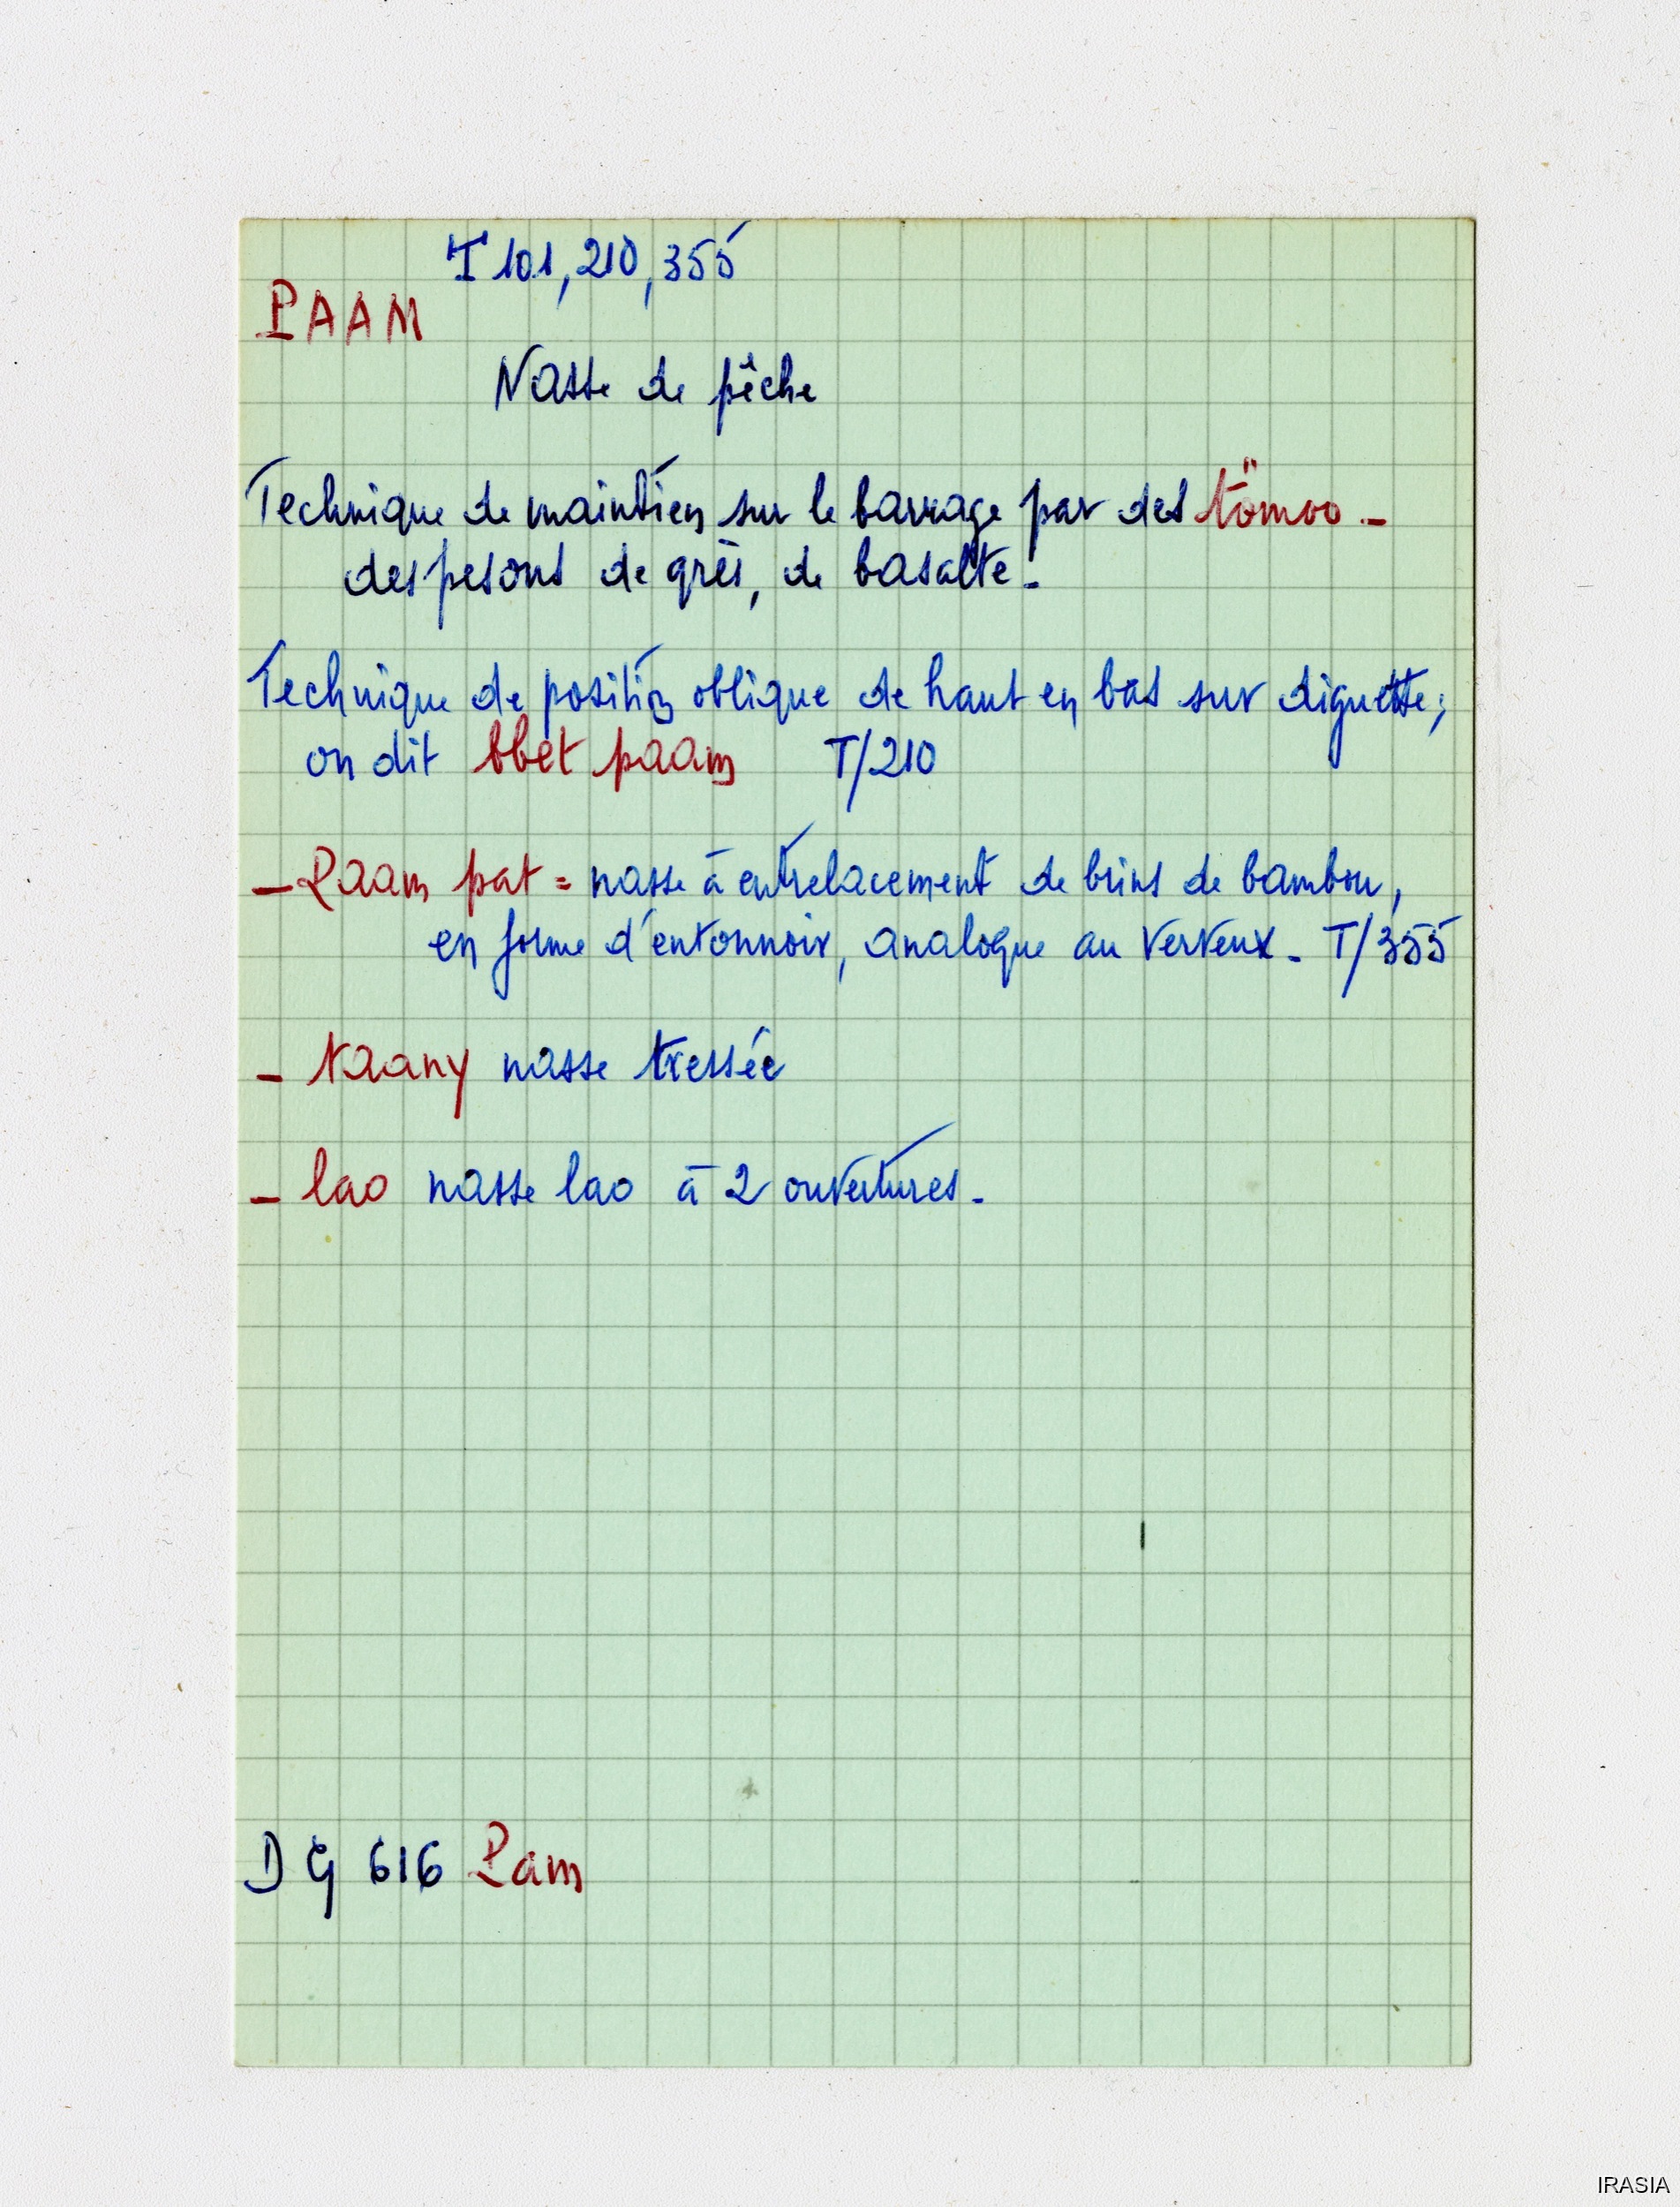 T 101, 210, 355
PAAM
Nasse de pêche
Technique de maintien sur le barrage par des tömoo -
des pesons de grès, de basalte.
Technique de position oblique de haut en bas sur diguette;
on dit bbet paam T/210
- Paam pat = nasse à entrelacement de brins de bambou,
en forme d'entonnoir, analogue au verveux. T/355
- taany nasse tressée
- lao nasse lao à 2 ouvertures.
DG 616 Pam
IRASIA